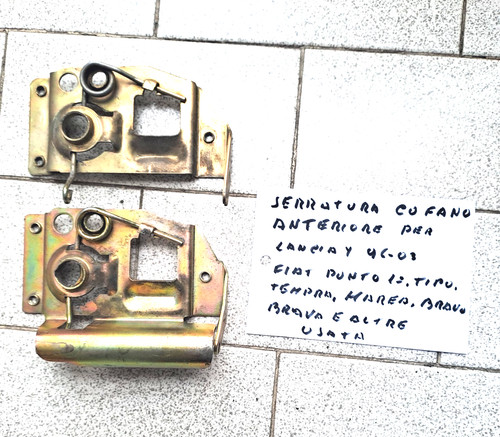 SERRATURA COFANO
ANTERIORE PER
LANCIA Y 96-03
FIAT PUNTO 1S. TIPO.
TEMPRA, MAREA, BRAVO
BRAVA E ALTRE
USATA